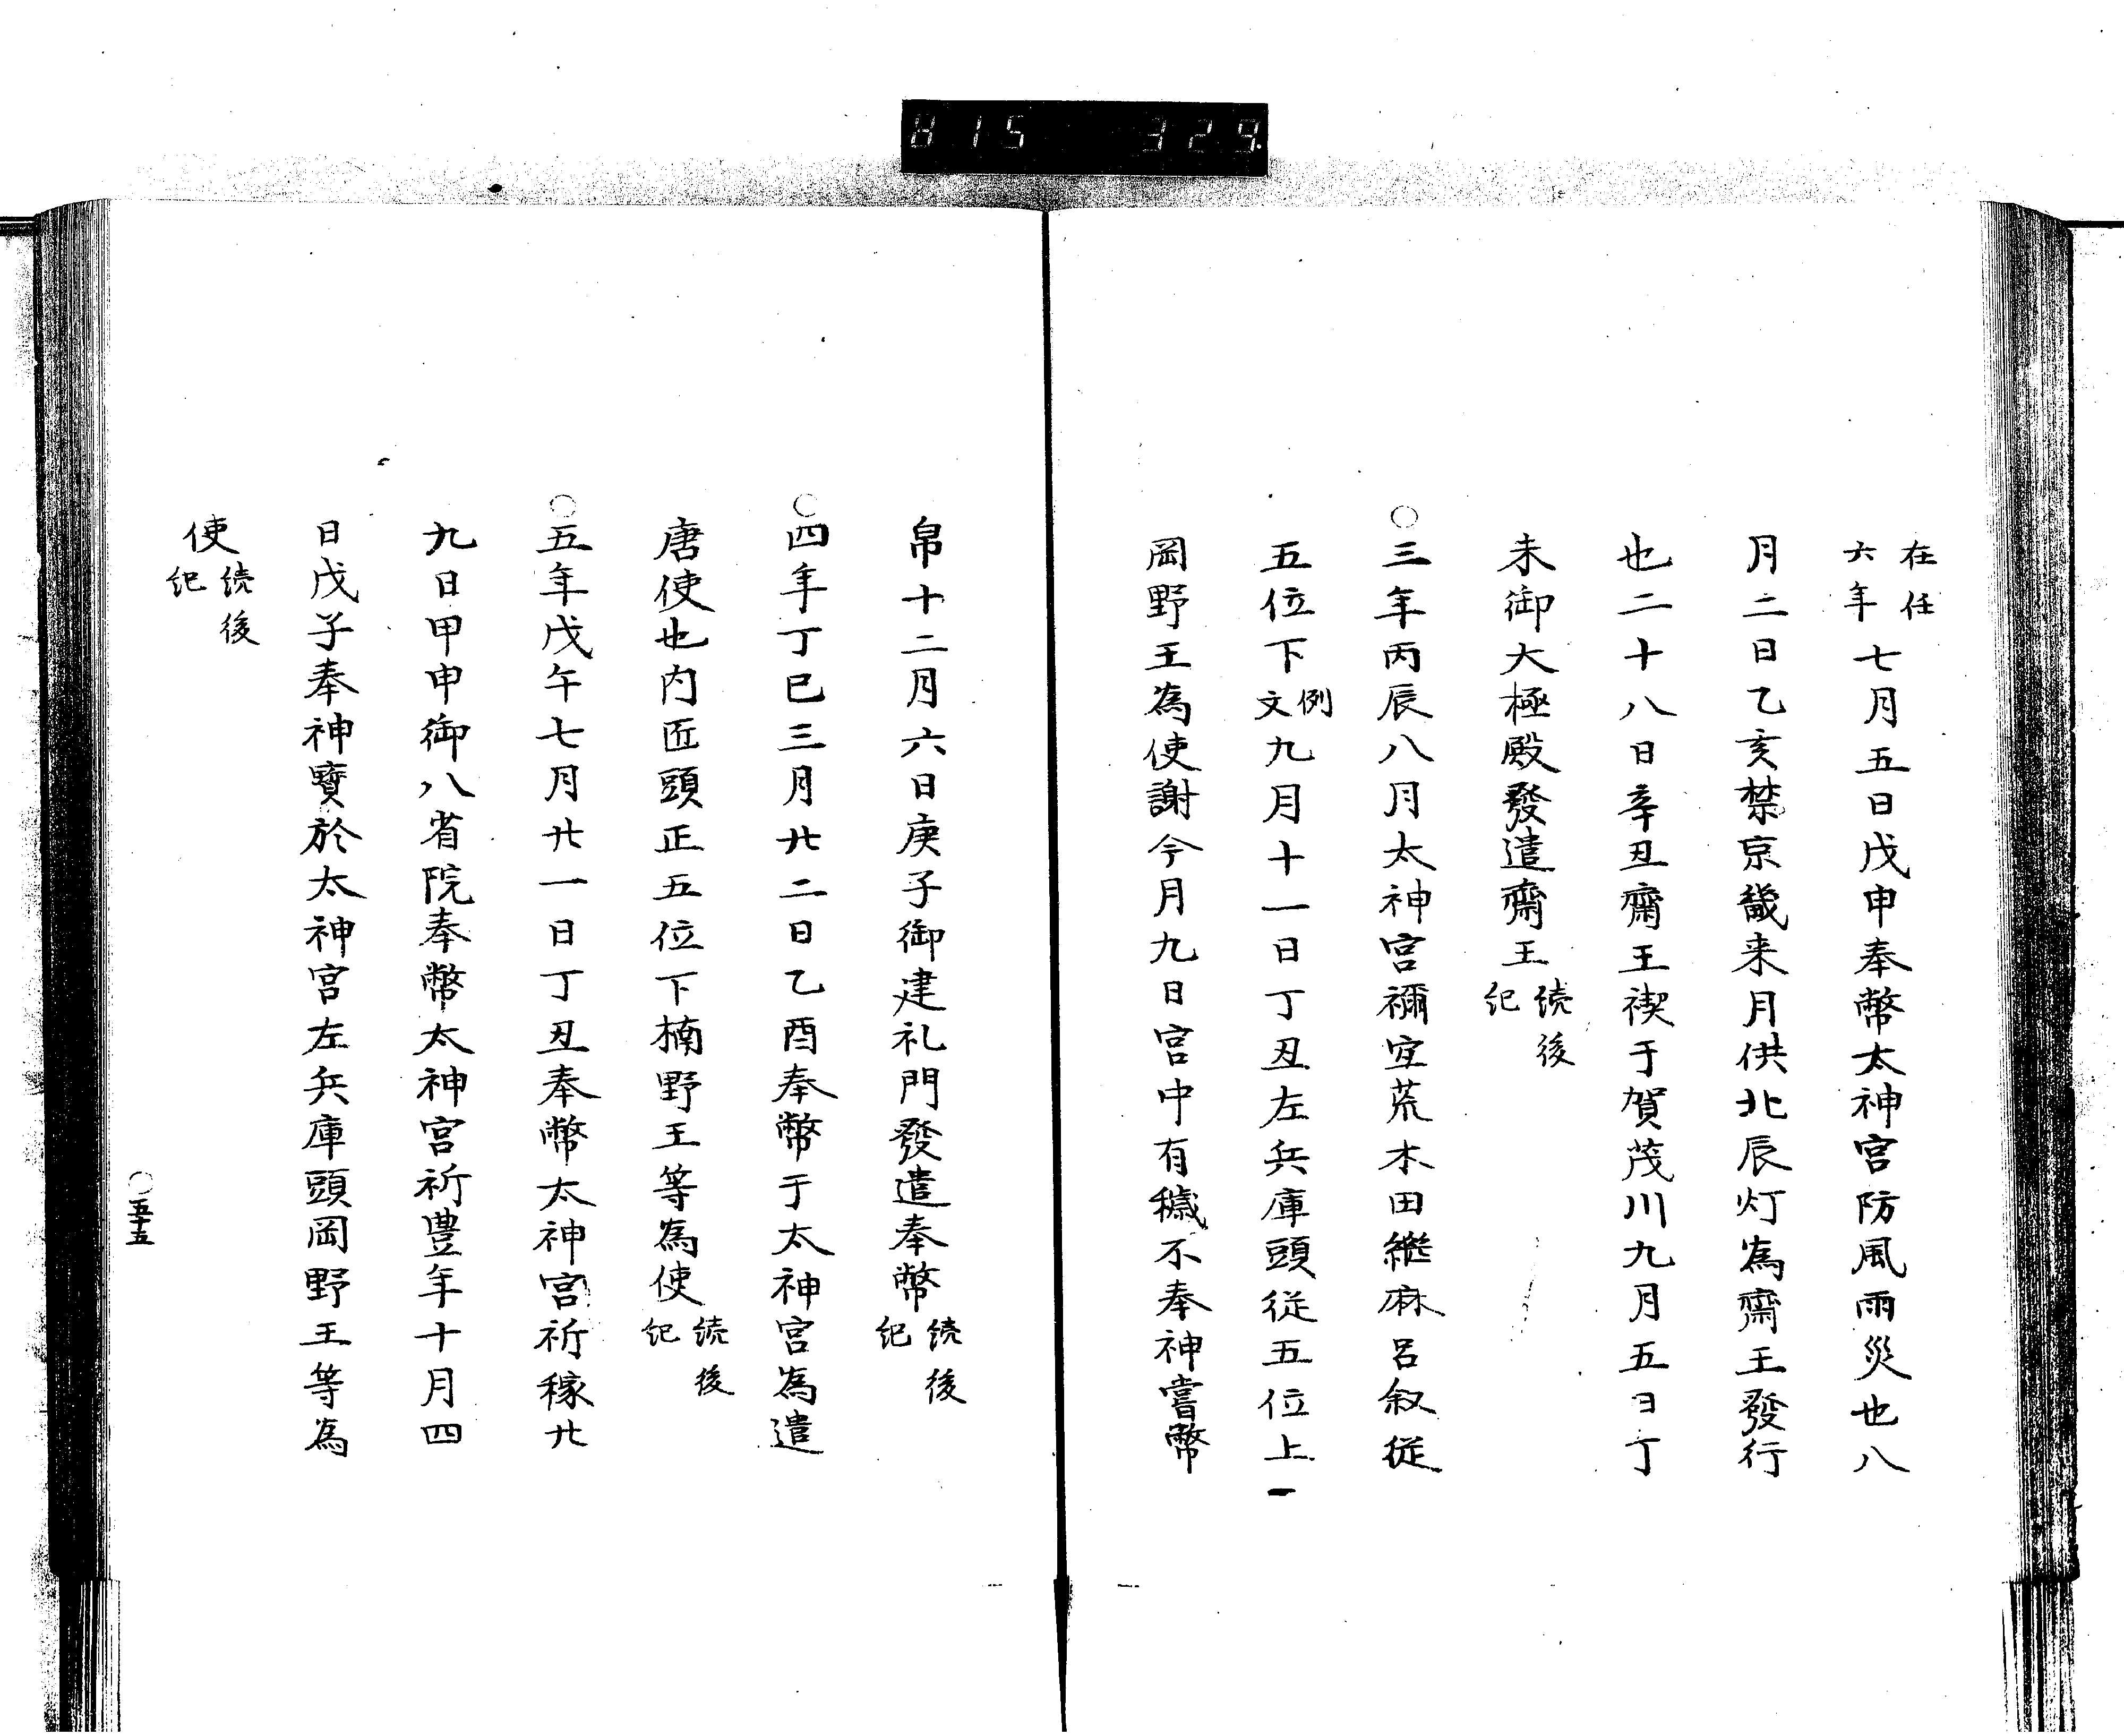 815 329
在任六年七月五日戊申奉幣太神宮防風雨災也八
月二日乙亥禁京畿来月供北辰灯為齋王發行
也二十八日辛丑齋王禊于賀茂川九月五日丁
未御大極殿發遣齋王続後紀
○三年丙辰八月太神宮禰宜荒木田継麻呂叙従
五位下例文九月十一日丁丑左兵庫頭従五位上
岡野王為使謝今月九日宮中有穢不奉神嘗幣
帛十二月六日庚子御建礼門發遣奉幣続後紀
○四年丁巳三月廿二日乙酉奉幣于太神宮為遣
唐使也内匠頭正五位下楠野王等為使続後紀
○五年戊午七月廿一日丁丑奉幣太神宮祈稼廿
九日甲申御八省院奉幣太神宮祈豊年十月四
日戊子奉神寶於太神宮左兵庫頭岡野王等為
使続後紀
○五十五